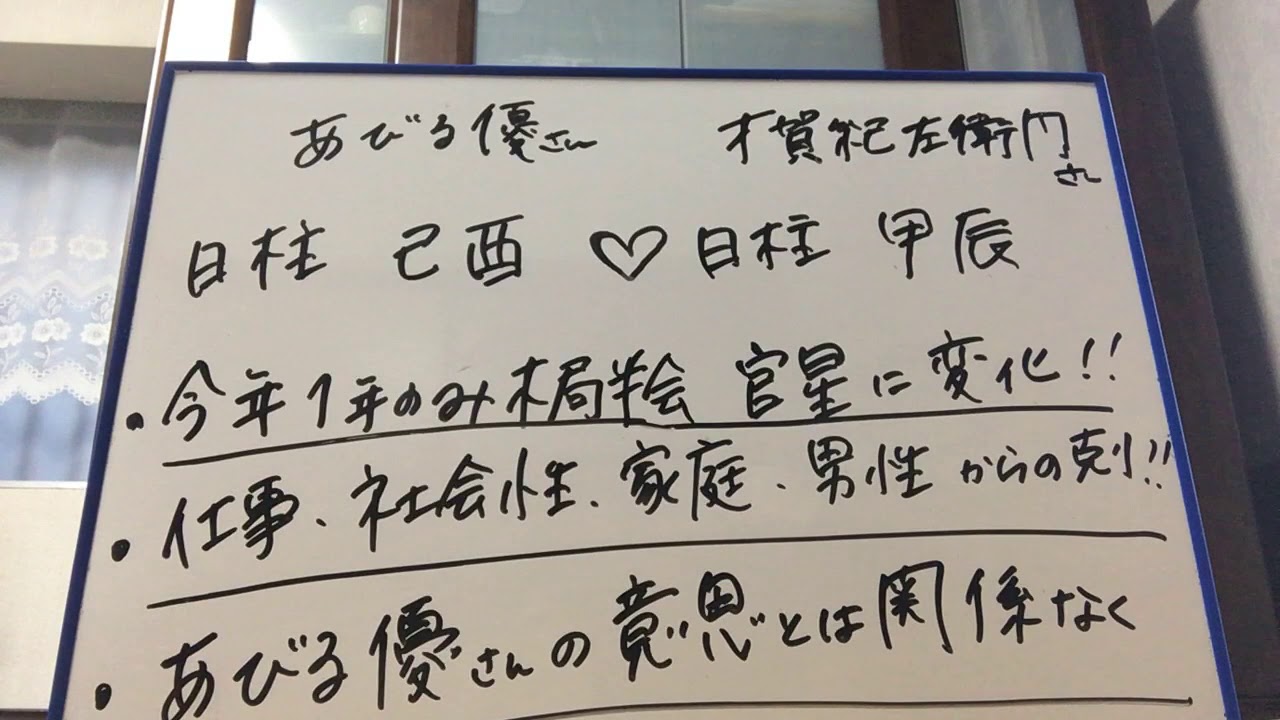 あびる優さん 才賀紀左衛門さん
日柱 己酉 ♡ 日柱 甲辰
・今年1年のみ木局半会 官星に変化!!
・仕事、社会性、家庭、男性からの剋!!
・あびる優さんの意思とは関係なく